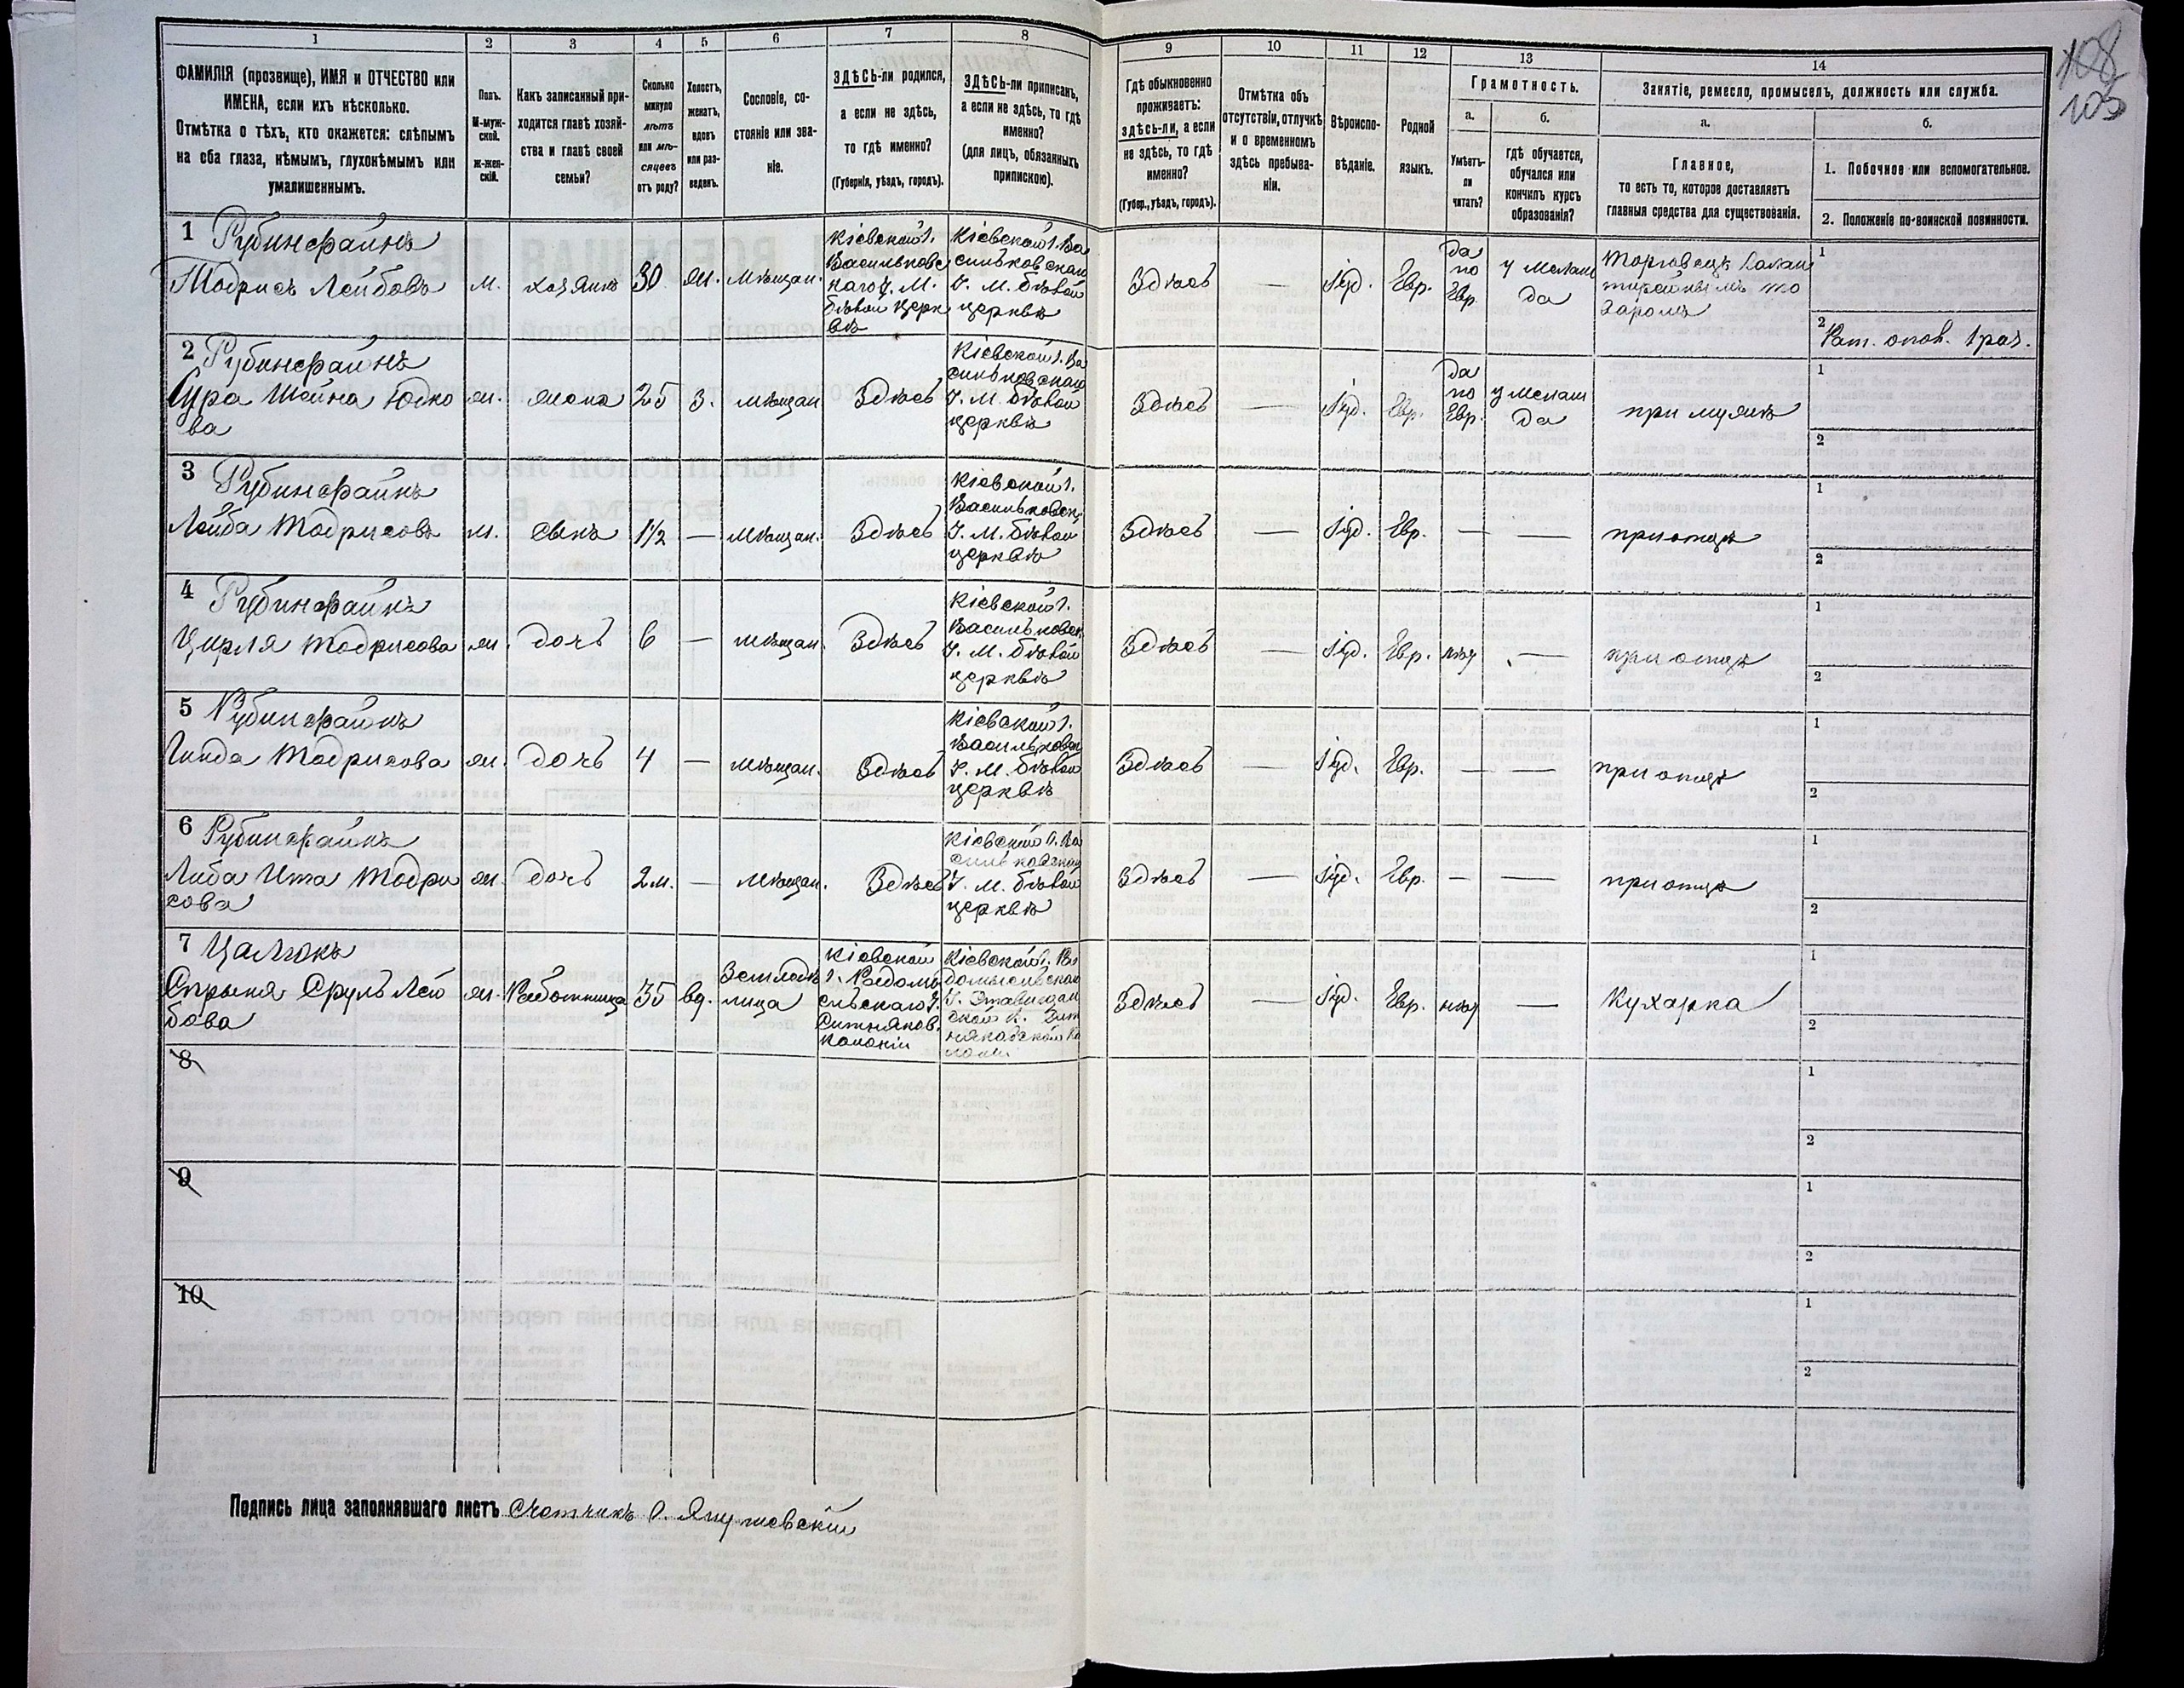 1 2 3 4 5 6 7 8 9 10 11 12 13 14
ФАМИЛІЯ (прозвище), ИМЯ и ОТЧЕСТВО или
ИМЕНА, если ихъ нѣсколько.
Отмѣтка о тѣхъ, кто окажется: слѣпымъ
на оба глаза, нѣмымъ, глухонѣмымъ или
умалишеннымъ.
Полъ.
М-муж-
ской.
ж-жен-
скій.
Какъ записанный при-
ходится главѣ хозяй-
ства и главѣ своей
семьи?
Сколько
минуло
лѣтъ
или мѣ-
сяцевъ
отъ роду?
Холостъ,
женатъ,
вдовъ
или раз-
веденъ.
Сословіе, со-
стояніе или зва-
ніе.
ЗДѢСЬ-ли родился,
а если не здѣсь,
то гдѣ именно?
(Губернія, уѣздъ, городъ).
ЗДѢСЬ-ли приписанъ,
а если не здѣсь, то гдѣ
именно?
(для лицъ, обязанныхъ
припискою).
Гдѣ обыкновенно
проживаетъ:
здѣсь-ли, а если
не здѣсь, то гдѣ
именно?
(Губер., уѣздъ, городъ).
Отмѣтка объ
отсутствіи, отлучкѣ
и о временномъ
здѣсь пребыва-
ніи.
Вѣроиспо-
вѣданіе.
Родной
языкъ.
Грамотность.
а.
Умѣетъ-
ли
читать?
б.
гдѣ обучается,
обучался или
кончилъ курсъ
образованія?
Занятіе, ремесло, промыселъ, должность или служба.
а.
Главное,
то есть то, которое доставляетъ
главныя средства для существованія.
б.
1. Побочное или вспомогательное.
2. Положеніе по воинской повинности.
108
105
1 Рубинфайнъ
Тодрисъ Лейбовъ
м.
хозяинъ
30
ж.
мѣщан.
Кіевской г.
Васильковс
каго у. м.
бѣлой церк
вѣ
Кіевской г. Ва
сильковскаго
у. м. бѣлой
церквѣ
Здѣсь
—
Іуд.
Евр.
да
по
Евр.
у мелам
да
Торговецъ галан
терейнымъ то
варомъ
1
2 Рат. опол. 1 раз.
2 Рубинфайнъ
Сура Шейна Юдко
ва
ж.
жена
25
з.
мѣщан
Здѣсь
Кіевской г. Ва
сильковскаго
у. м. бѣлой
церквѣ
Здѣсь
—
Іуд.
Евр.
да
по
Евр.
у мелам
да
при мужѣ
1
2
3 Рубинфайнъ
Лейба Тодрисовъ
м.
сынъ
1 1/2
—
мѣщан.
Здѣсь
Кіевской г.
Васильковск.
у. м. бѣлой
церквѣ
Здѣсь
—
Іуд.
Евр.
—
—
при отцѣ
1
2
4 Рубинфайнъ
Цирля Тодрисова
ж.
дочь
6
—
мѣщан.
Здѣсь
Кіевской г.
Васильковск
у. м. бѣлой
церквѣ
Здѣсь
—
Іуд.
Евр.
нѣт
—
при отцѣ
1
2
5 Рубинфайнъ
Гинда Тодрисова
ж.
дочь
4
—
мѣщан.
Здѣсь
Кіевской г.
Васильковск
у. м. бѣлой
церквѣ
Здѣсь
—
Іуд.
Евр.
—
—
при отцѣ
1
2
6 Рубинфайнъ
Либа Ита Тодри
сова
ж.
дочь
2 м.
—
мѣщан.
Здѣсь
Кіевской г. Ва
сильковскаго
у. м. бѣлой
церквѣ
Здѣсь
—
Іуд.
Евр.
—
—
при отцѣ
1
2
7
Спрыня Сруль Лей
бова
ж.
Работница
35
вд.
Кіевской
г. Радомы
сльскаго у.
Ситняков.
колоніи
Кіевской г. Ра
домысльскаго
Здѣсь
—
Іуд.
Евр.
нѣт
—
Кухарка
1
2
8
1
2
9
1
2
10
1
2
Подпись лица заполнявшаго листъ Счетчикъ